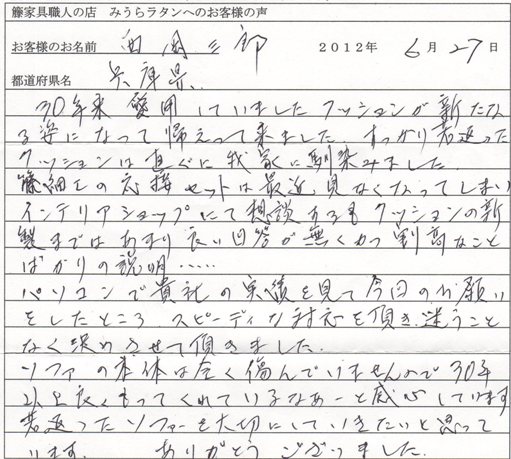 籐家具職人の店　みうらラタンへのお客様の声
お客様のお名前　西岡三郎　2012年 6月27日
都道府県名　兵庫県
30年来愛用していましたクッションが新たな
る姿になって帰えって来ました　すっかり若返った
クッションは直ぐに我家に馴染みました.
籐細工の応接セットは最近見なくなってしまい
インテリアショップにて相談するもクッションの新
製まではあまり良い回答が無くかつ割高なこと
ばかりの説明……
パソコンで貴社の実績を見て今回のお願い
をしたところ スピーディな対応を頂き迷うこと
なく決めさせて頂きました.
ソファの本体は全く傷んでいませんので30年
以上良くもってくれているなぁーと感心しています
若返ったソファーを大切にしていきたいと思って
います.　ありがとうございました.